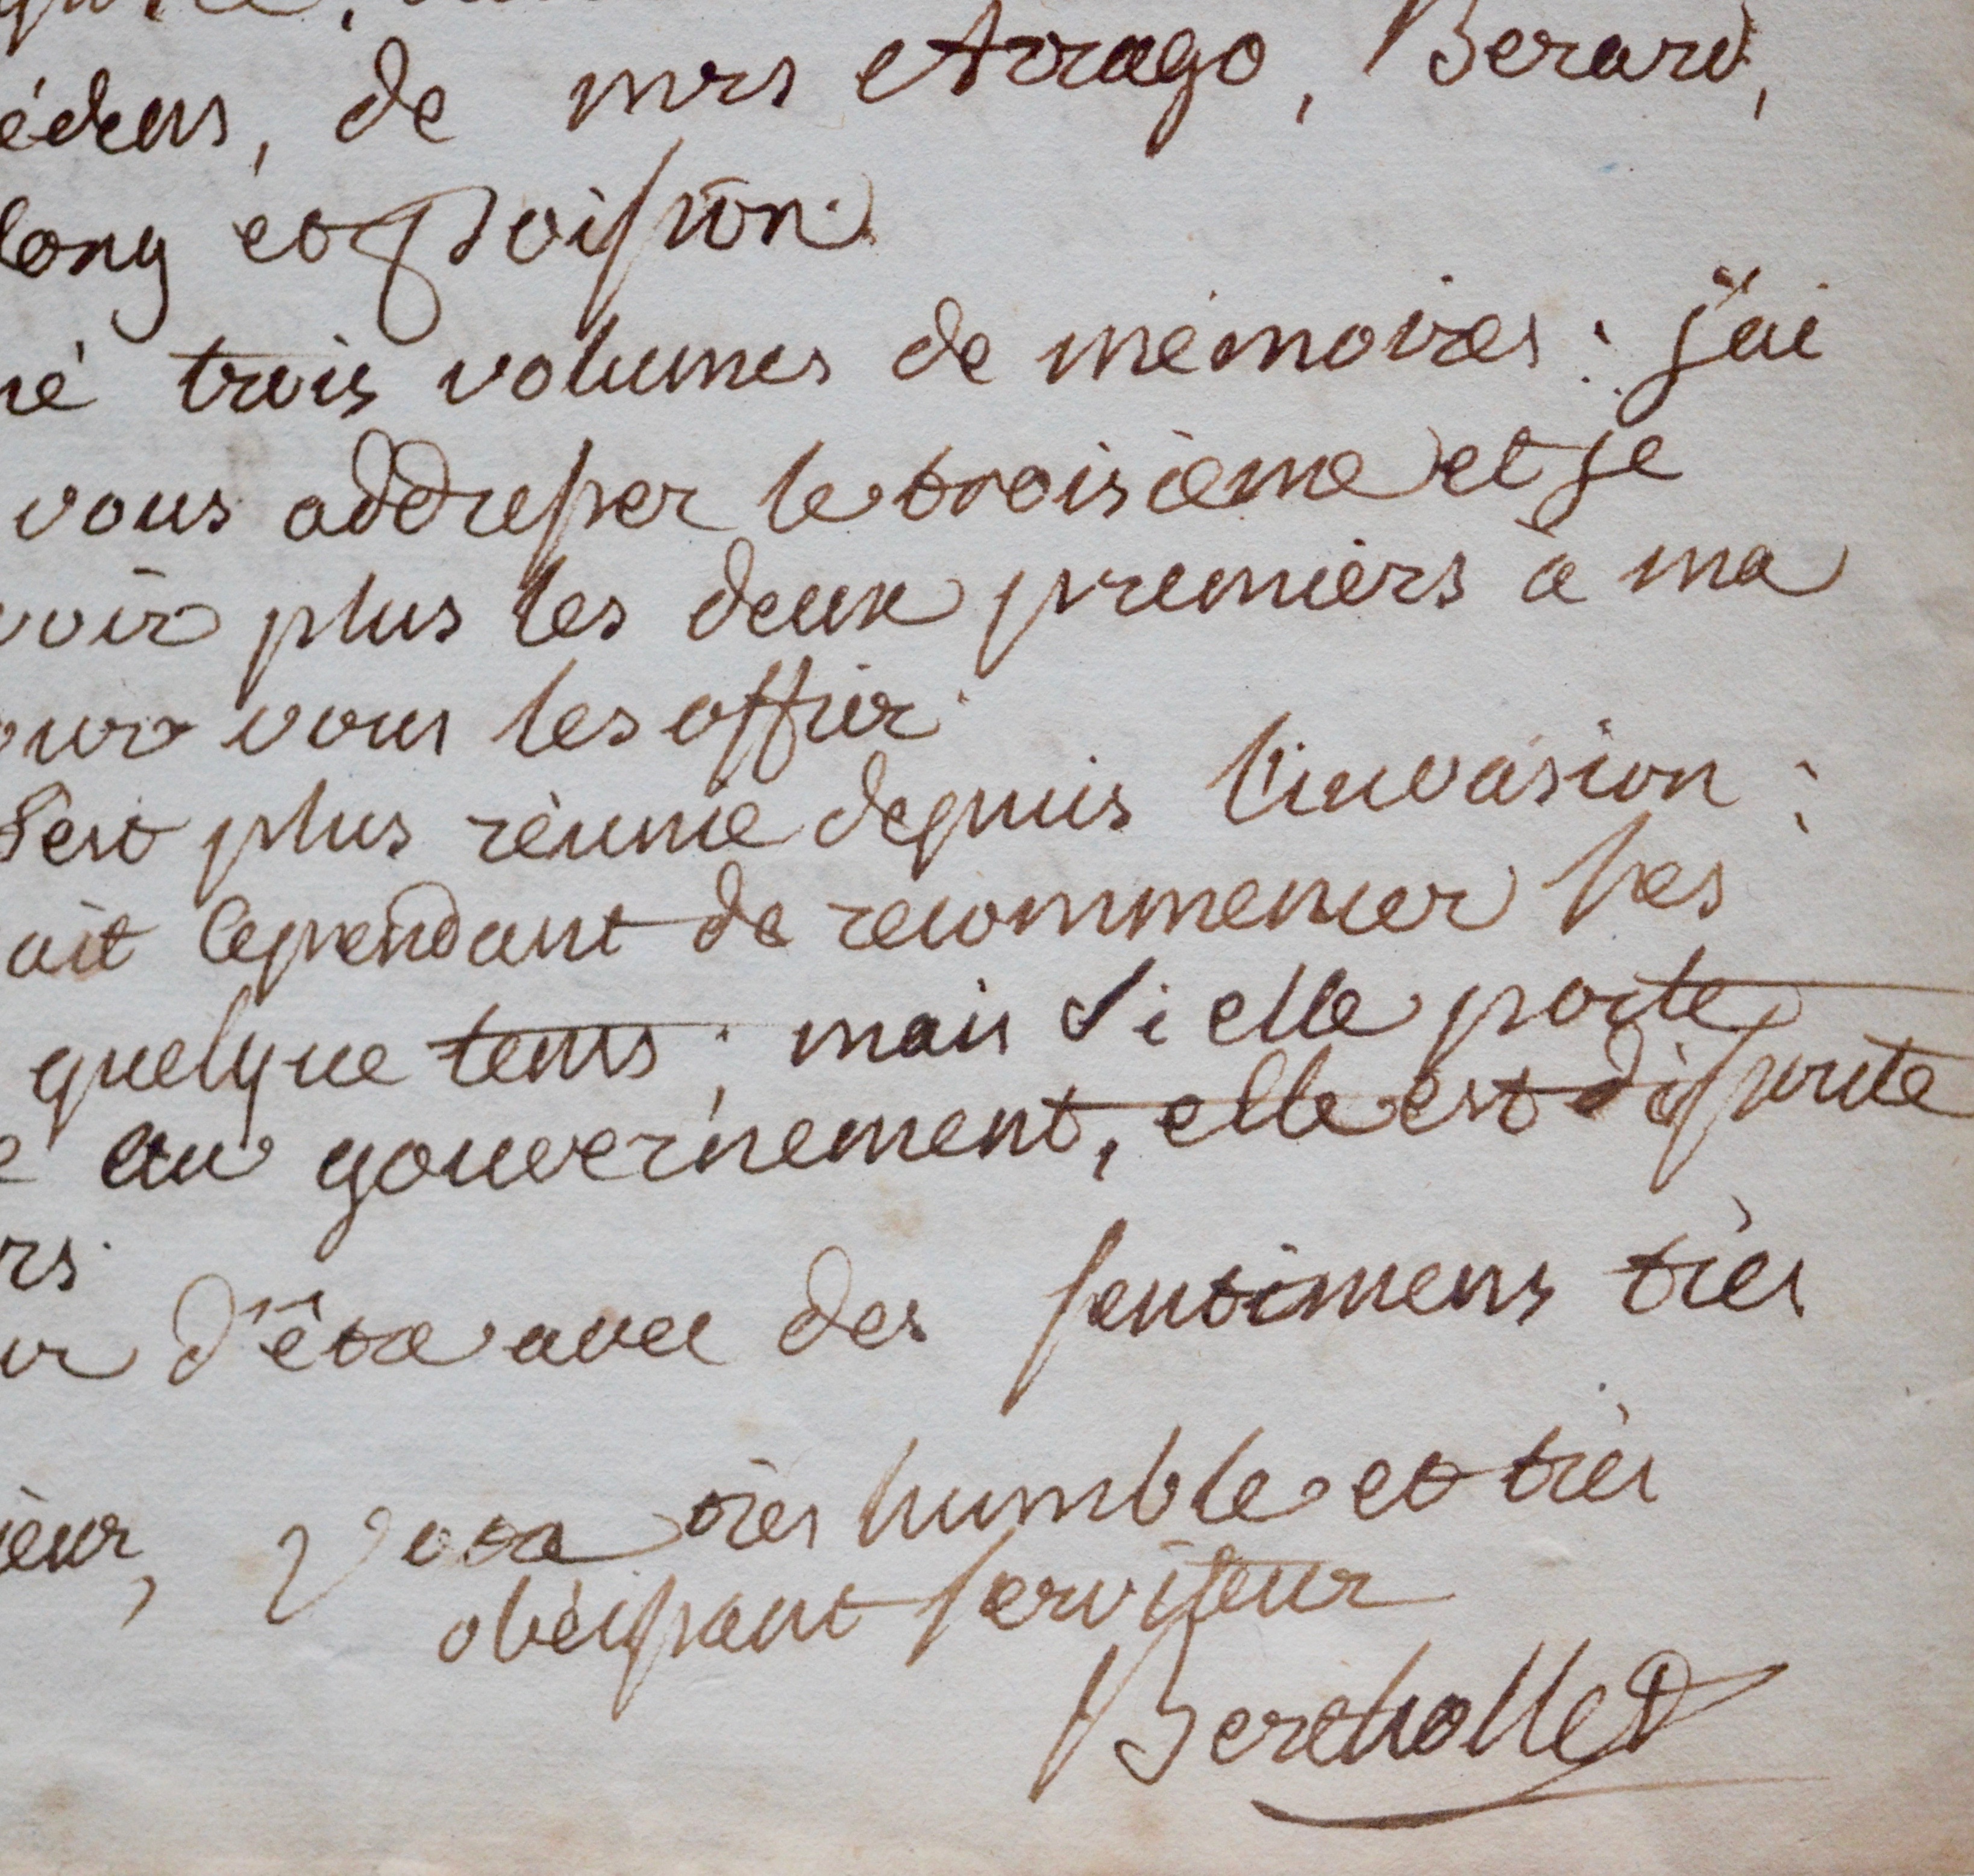 édens, de mrs Arrago, Berard,
long et Poisson.
né trois volumes de mémoires : j'ai
vous addresser le troisième et je
voir plus les deux premiers à ma
our vous les offrir.
s'est plus réunie depuis l'invasion :
ait cependant de recommencer ses
quelque tems ; mais si elle porte
e au gouvernement, elle est dissoute
rs.
ur d'être avec des sentimens très
ieur, Votre très humble et très
obéissant serviteur
Berthollet